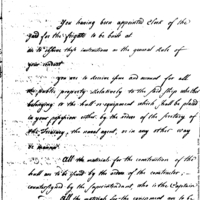 You having been appointed Clerk of the
Yard for the frigate to be built at
in to offer these instructions in the general rule of
your conduct
you are to receive from and account for all
the public property relatively to the said ship whether
belonging to the hull or equipment which shall be placed
in your possession either by the orders of the Secretary of
the Treasury, the naval agent, or in any other way
to
All the materials for the construction of the
hull are to be issued by the orders of the constructor,
countersigned by the Superintendant, who is the Captain
All the materials for the equipment are to be